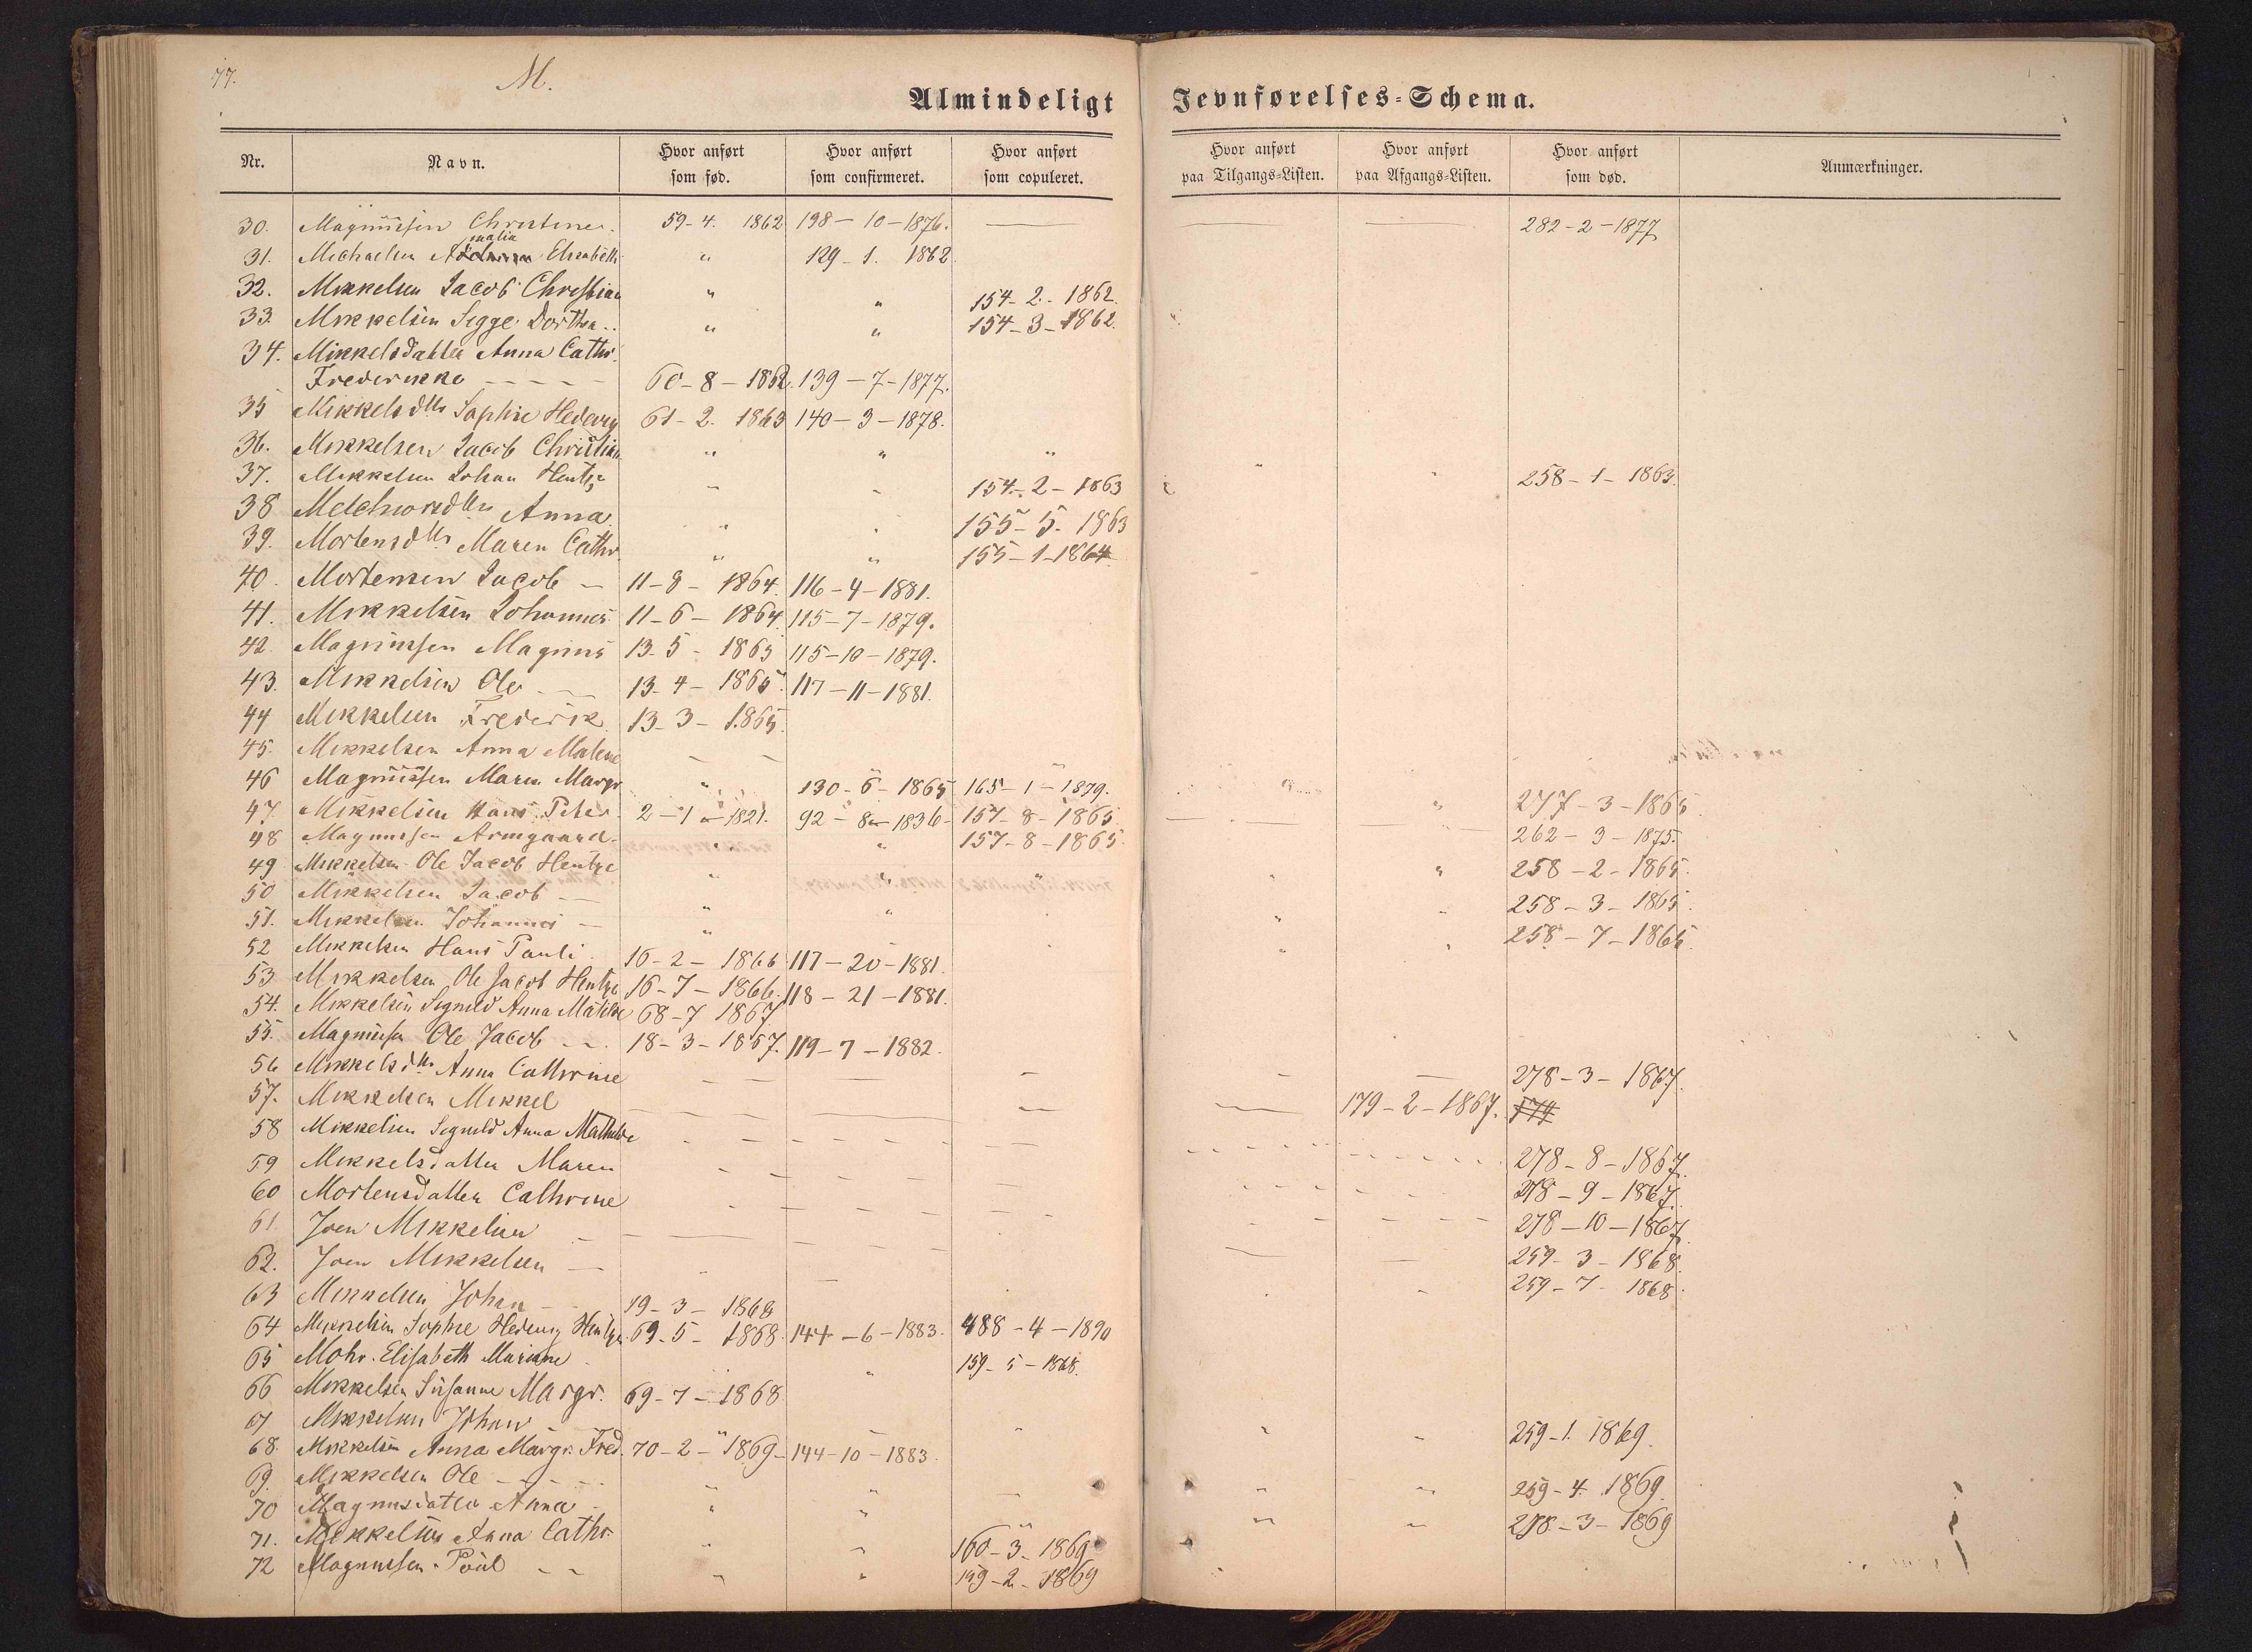 77.
M.
Almindeligt Jevnførelses-Schema.
Nr. Navn. Hvor anført som fød. Hvor anført som confirmeret. Hvor anført som copuleret. Hvor anført paa Tilgangs-Listen. Hvor anført paa Afgangs-Listen. Hvor anført som død. Anmærkninger.
30. Magnussen Christine 59-4. 1862 198-10-1876. — — — 282-2-1877
31. Michaelsen malia Elisabeth " 129-1. 1862
32. Mikkelsen Jacob Christian " " 154-2-1862.
33. Mikkelsen Sigge Dorthea " " 154-3-1862.
34. Mikkelsdatter Anna Cathr.
Frederikke - - - - 60-8-1862. 139-7-1877.
35 Mikkelsdtr Sophie Hedevig 61-2. 1863 140-3-1878.
36. Mikkelsen Jacob Christian " " " " " 258-1-1863.
37. Mikkelsen Johan Hentze " " 154-2-1863
38 Melchiorsdtr Anna " " 155-5. 1863
39. Mortensdtr Maren Cathr. " " 155-1-1864
40. Mortensen Jacob — 11-8-1864. 116-4-1881.
41. Mikkelsen Johannes 11-6-1864. 115-7-1879.
42. Magnussen Magnus 13-5-1865 115-10-1879.
43. Mikkelsen Ole 13-4-1865. 117-11-1881.
44 Mikkelsen Frederik 13-3-1865.
45. Mikkelsen Anna Malene — — " " " " 277-3-1865
46 Magnussen Maren Margr. " 130-6-1865 165-1-1879.
47. Mikkelsen Hans Peter 2-1-1821. 92-8-1836- 157-8-1865. — — 262-3-1875.
48 Magnussen Armgaard " " 157-8-1865.
49 Mikkelsen Ole Jacob Hentze " " " " " 258-2-1865.
50 Mikkelsen Jacob — " " " " 258-3-1865.
51. Mikkelsen Johannes — " " " 258-7-1865.
52 Mikkelsen Hans Pauli 16-2-1866 117-20-1881.
53 Mikkelsen Ole Jacob Hentze 16-7-1866. 118-21-1881.
54. Mikkelsen Signeld Anna Matilde 68-7 1867
55. Magnussen Ole Jacob 18-3-1867. 119-7-1882.
56 Mikkelsdtr Anna Cathrine — — — — — 278-3-1867.
57. Mikkelsen Mikkel — — — — 179-2-1867. 174
58 Mikkelsen Signeld Anna Mathilde - - - - - 278-8-1867.
59 Mikkelsdatter Maren - - - - - 278-9-1867.
60 Mortensdatter Cathrine - - - - - 278-10-1867.
61. Joen Mikkelsen — — — — — 259-3-1868.
62. Joen Mikkelsen — - — 259-7-1868.
63 Mikkelsen Johan 19-3-1868
64 Mikkelsen Sophie Hedevig Hentze. 69-5-1868. 144-6-1883. 488-4-1890
65 Mohr. Elisabeth Mariane " 159-5-1868.
66 Mikkelsen Susanne Margr. 69-7-1868
67 Mikkelsen Johan " " " " " 259-1. 1869.
68. Mikkelsen Anna Margr. Fred. 70-2-1869- 144-10-1883.
69. Mikkelsen Ole " " — " " 259-4. 1869.
70 Magnusdatter Anna " " " " " 278-3-1869
71. Mikkelsen Anna Cathr. " " 160-3-1869
72 Magnussen Poul - - " " 159-2-1869